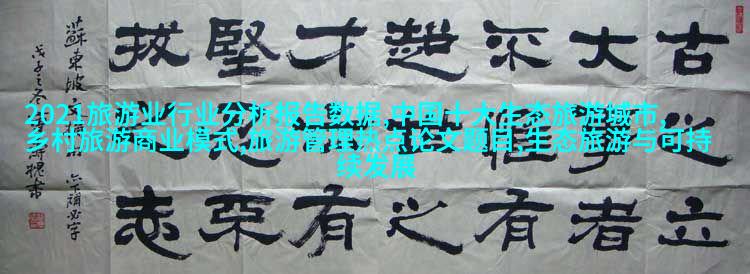 2021旅游业行业分析报告数据,中国十大生态旅游城市,
乡村旅游商业模式,旅游管理热点论文题目,生态旅游与可持
续发展
古之立
大事者
不惟有
超世之
才必有
堅忍不
拔之志
蘇東坡
戊子之冬